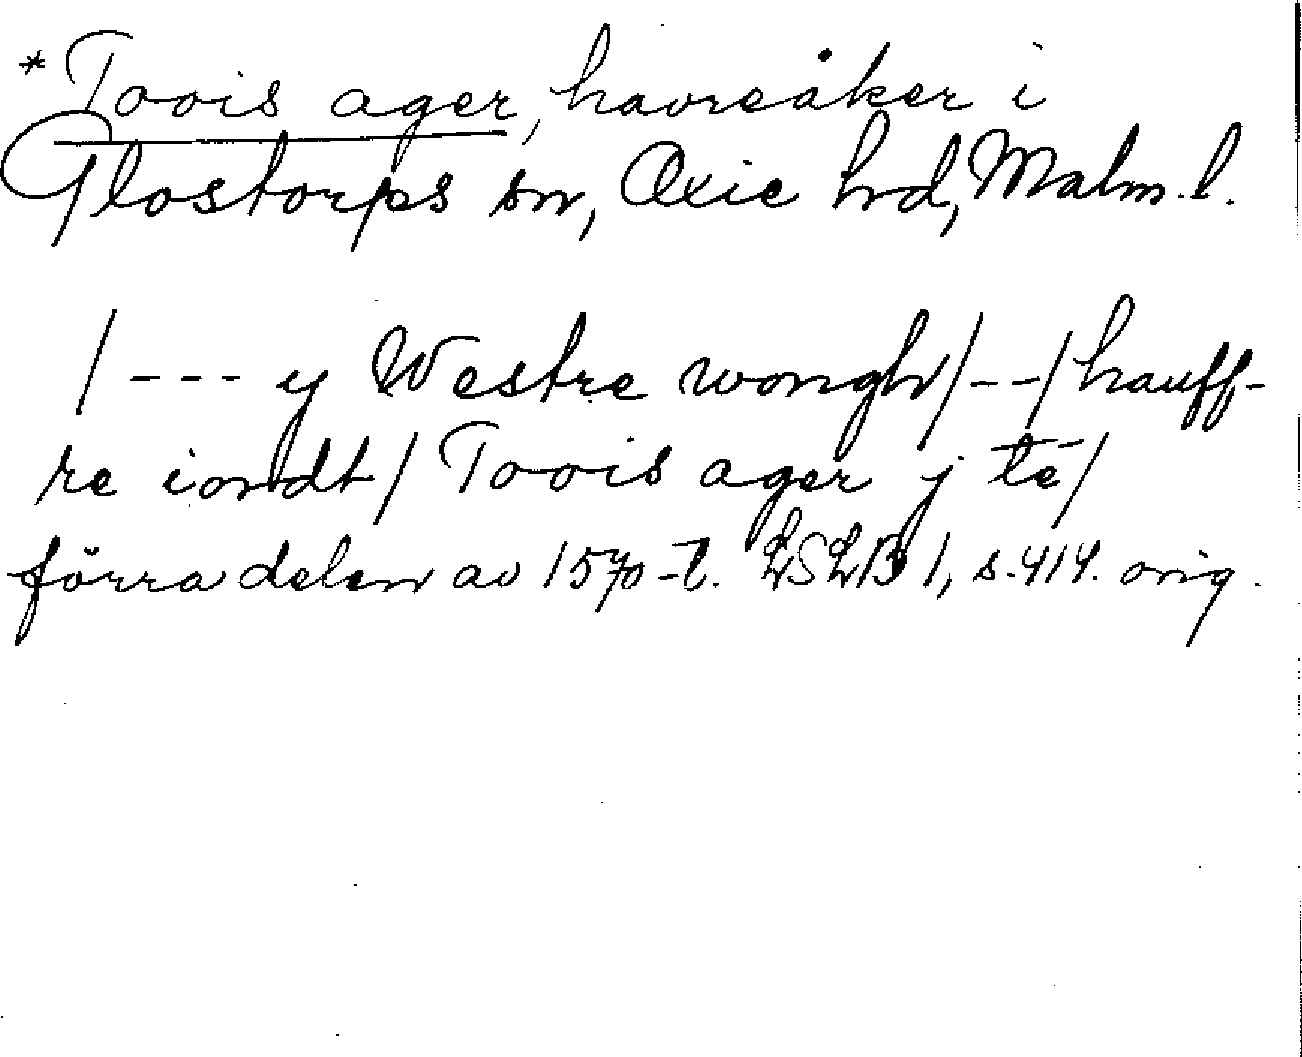 * Toois ager, havreåker i
Glostorps sn, Oxie hd, Malm. l.
/--- y Westre wongh/--/hauff-
re iordt/ Toois ager j tē/
förra delen av 1570-t. LSLB 1, s. 414. orig.